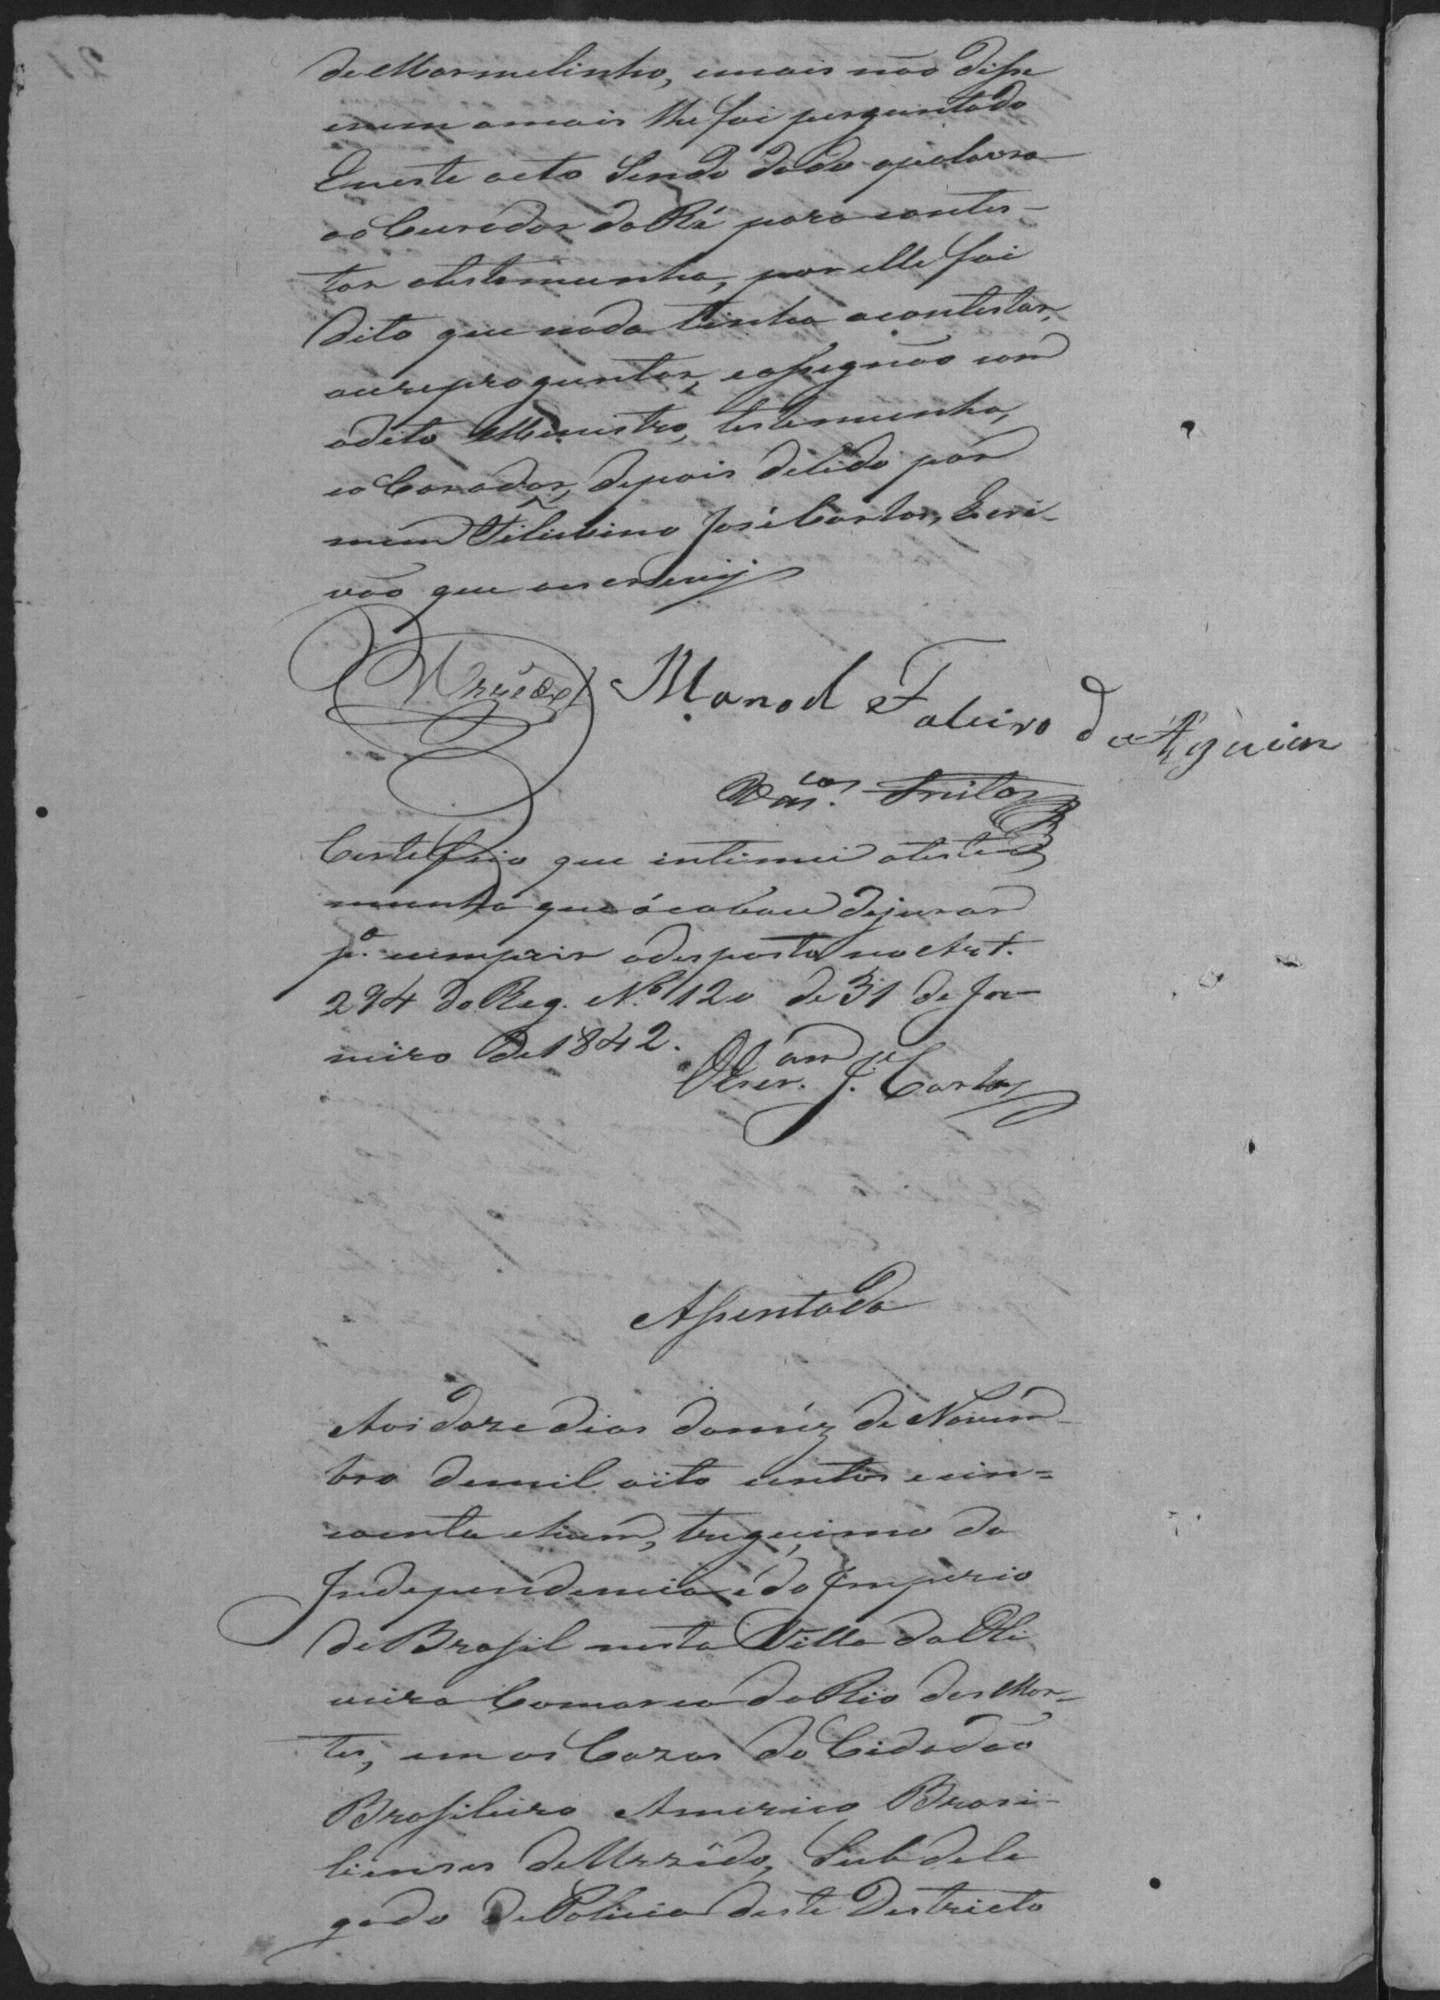 de Marmelinho, emais não disse
enem amais lhe foi perguntado
Eneste acto Sendo dado apalavra
ao Curador da Ré para contes-
tar atestemunha, por elle foi
dito que nada tinha acontestar,
aureproguntar, eassignão com
odito Menistro, testemunha,
eo Corador, depois delido por
mim Filisbino José Carlos, Escri-
vão que aescrevij
Urzêdo Manoel Faleiro de Aguiar
Vas.cos Freitas
Certefico que intimei ateste
munha que ácabou dejurar
pª. cumprir odesposto no Art.
294 do Reg. Nº 120 de 31 de Ja-
neiro de 1842.
O Escr.am J.e Carlos
Assentada
Aos doze dias do méz de Novem-
bro demil oito centos ecin=
coenta ehum, trigecimo da
Independencia é do Imperio
do Brasil nesta Villa da Oli
veira Comarca do Rio das Mor-
tes, em as Cazas do Cidadão
Brasileiro Americo Brasi-
lienses de Urzêdo, Sub dele
gado de Policia deste Destricto